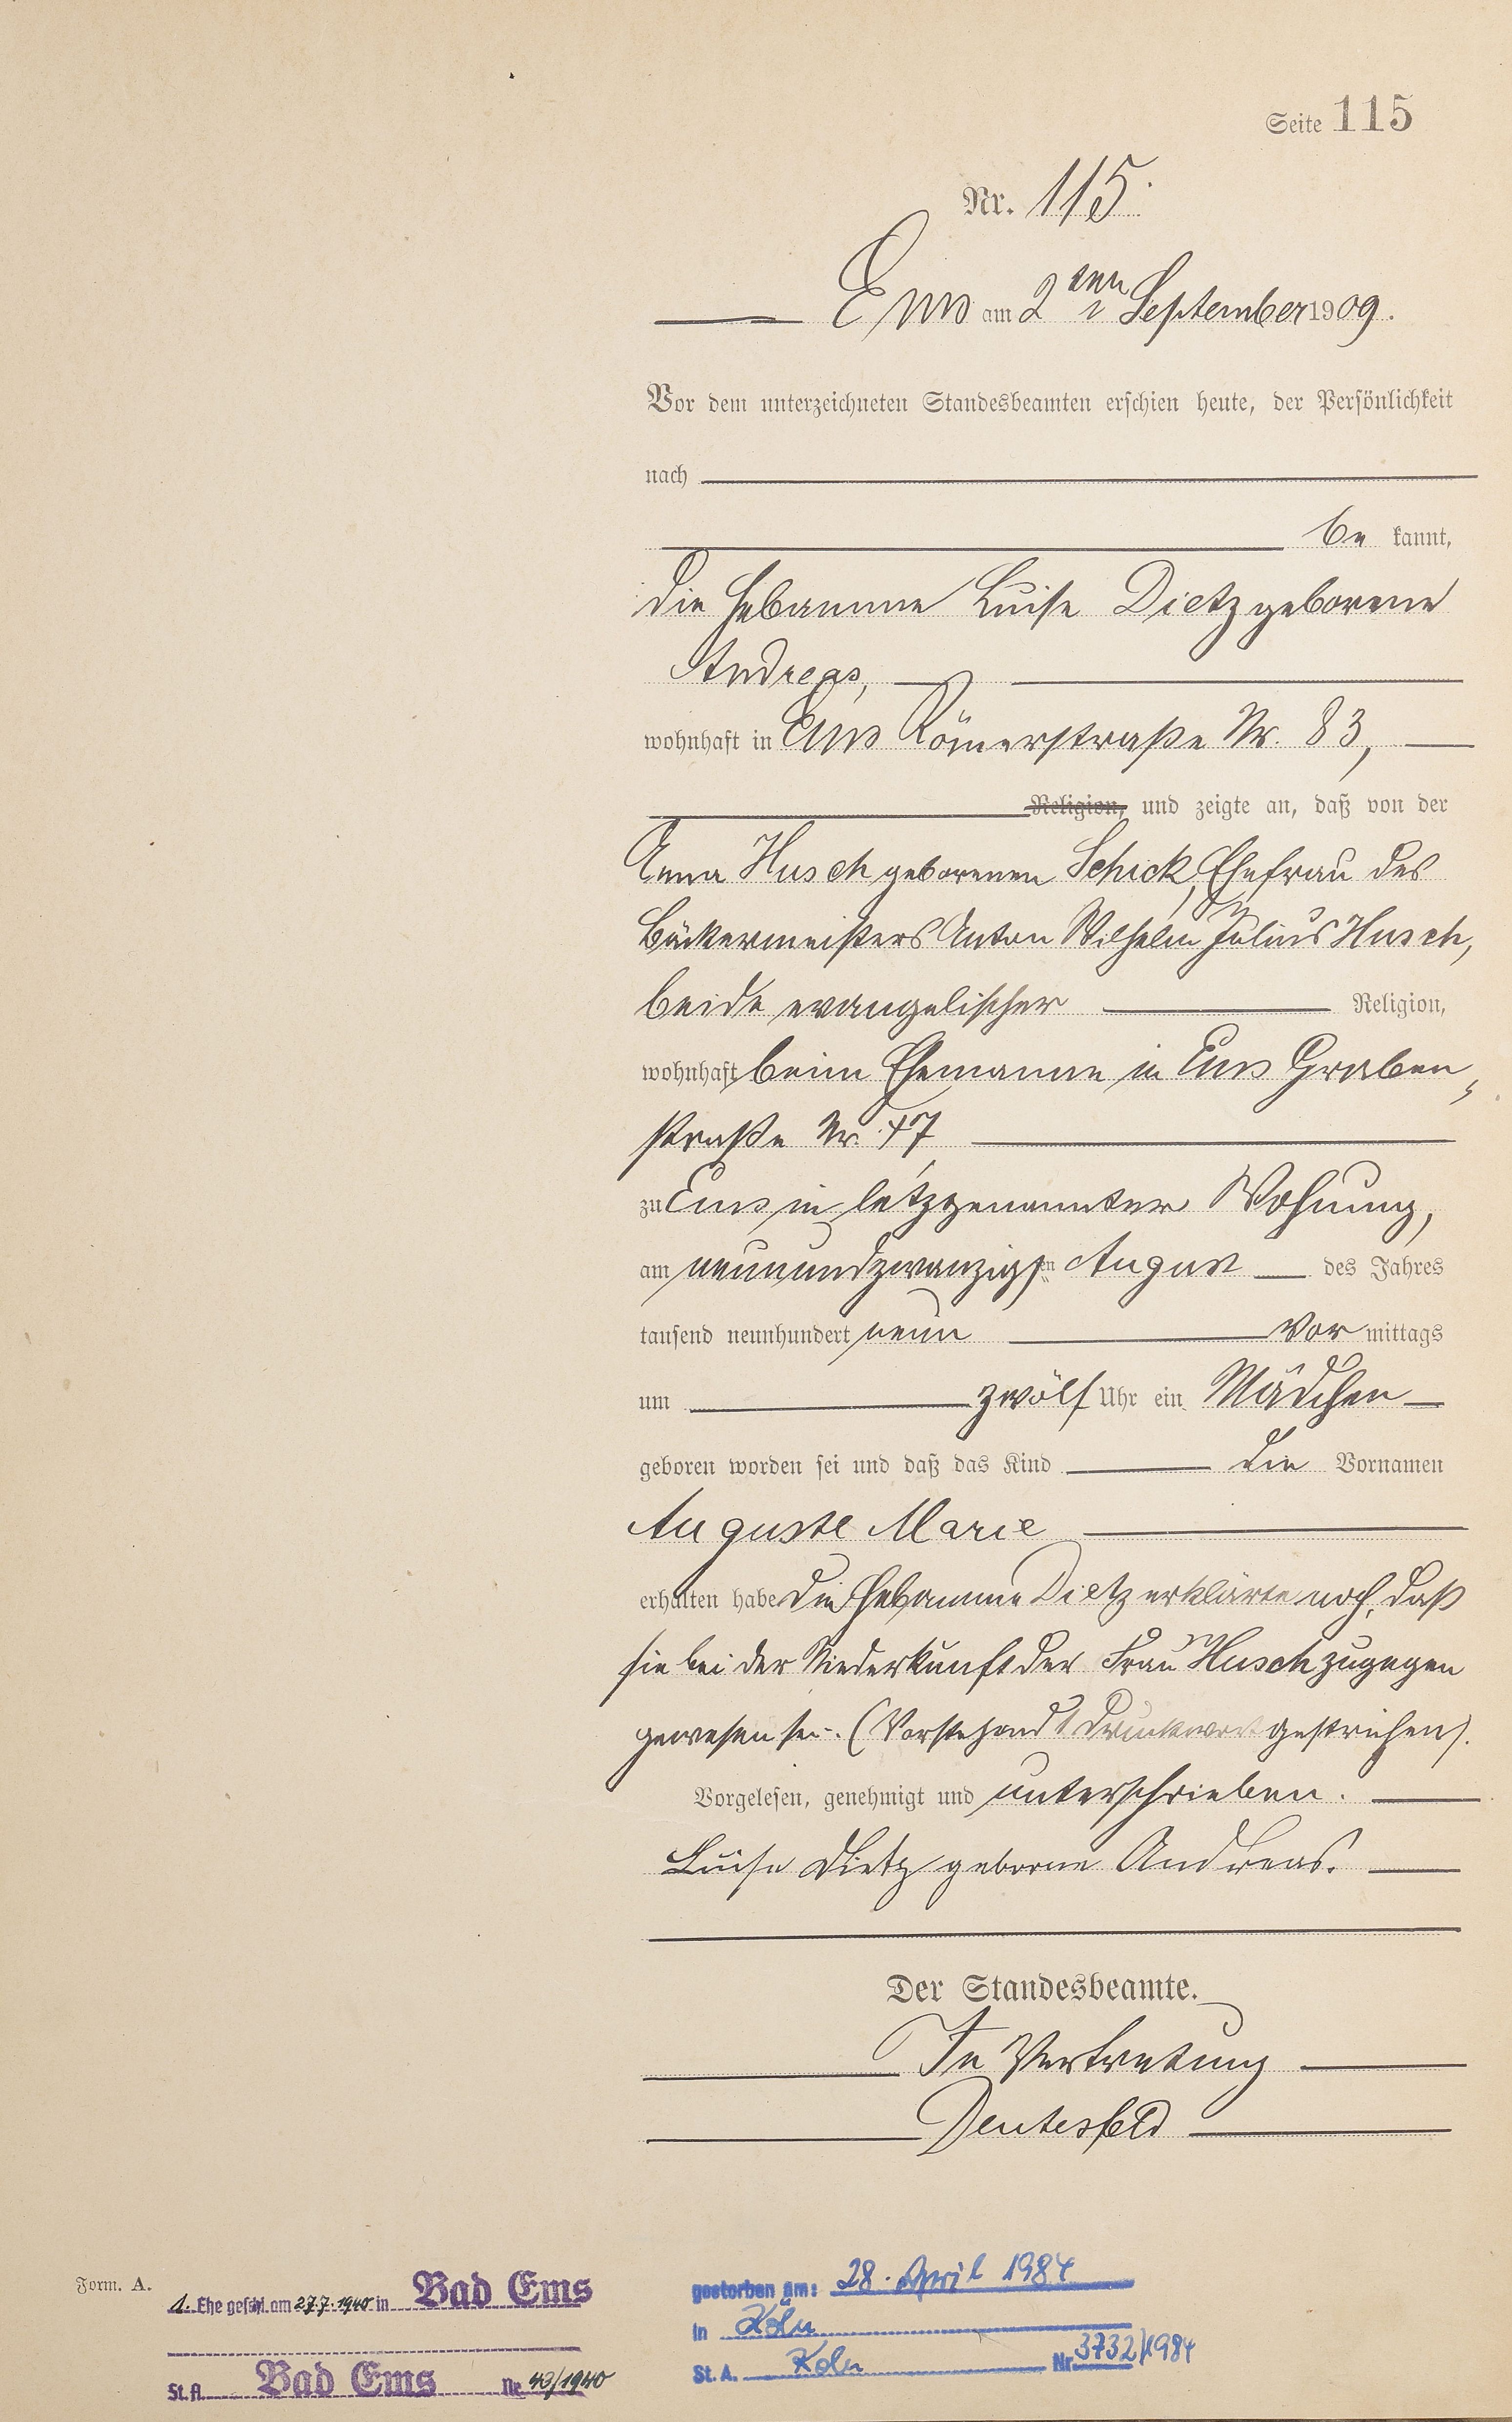 Seite 115
Nr. 115.
Ems am 2ten September 1909.
Vor dem unterzeichneten Standesbeamten erschien heute, der Persönlichkeit
nach
be kannt,
die Hebamme Luise Dietz geborene
Andreas,
wohnhaft in Ems Römerstraße Nr. 83,
Religion, und zeigte an, daß von der
Anna Husch geborenen Schick, Ehefrau des
Bäckermeisters Anton Wilhelm Julius Husch,
beide evangelischer Religion,
wohnhaft beim Ehemanne in Ems Graben-
straße Nr. 47
zu Ems in letztgenannter Wohnung,
am neunundzwanzigsten August des Jahres
tausend neunhundert neun vor mittags
um zwölf Uhr ein Mädchen
geboren worden sei und daß das Kind die Vornamen
Auguste Marie
erhalten habe Die Hebamme Dietz erklärte noch, daß
sie bei der Niederkunft der Frau Husch zugegen
gewesen sei. (Vorstehend 1 Druckwort gestrichen).
Vorgelesen, genehmigt und unterschrieben.
Luise Dietz geborne Andreas.
Der Standesbeamte.
In Vertretung
Deutesfeld
Form. A.
1. Ehe geschl. am 27.7.1940 in Bad Ems
St. A. Bad Ems Nr. 43/1940
gestorben am: 28. April 1984
in Köln
St. A. Köln Nr. 3732/1984